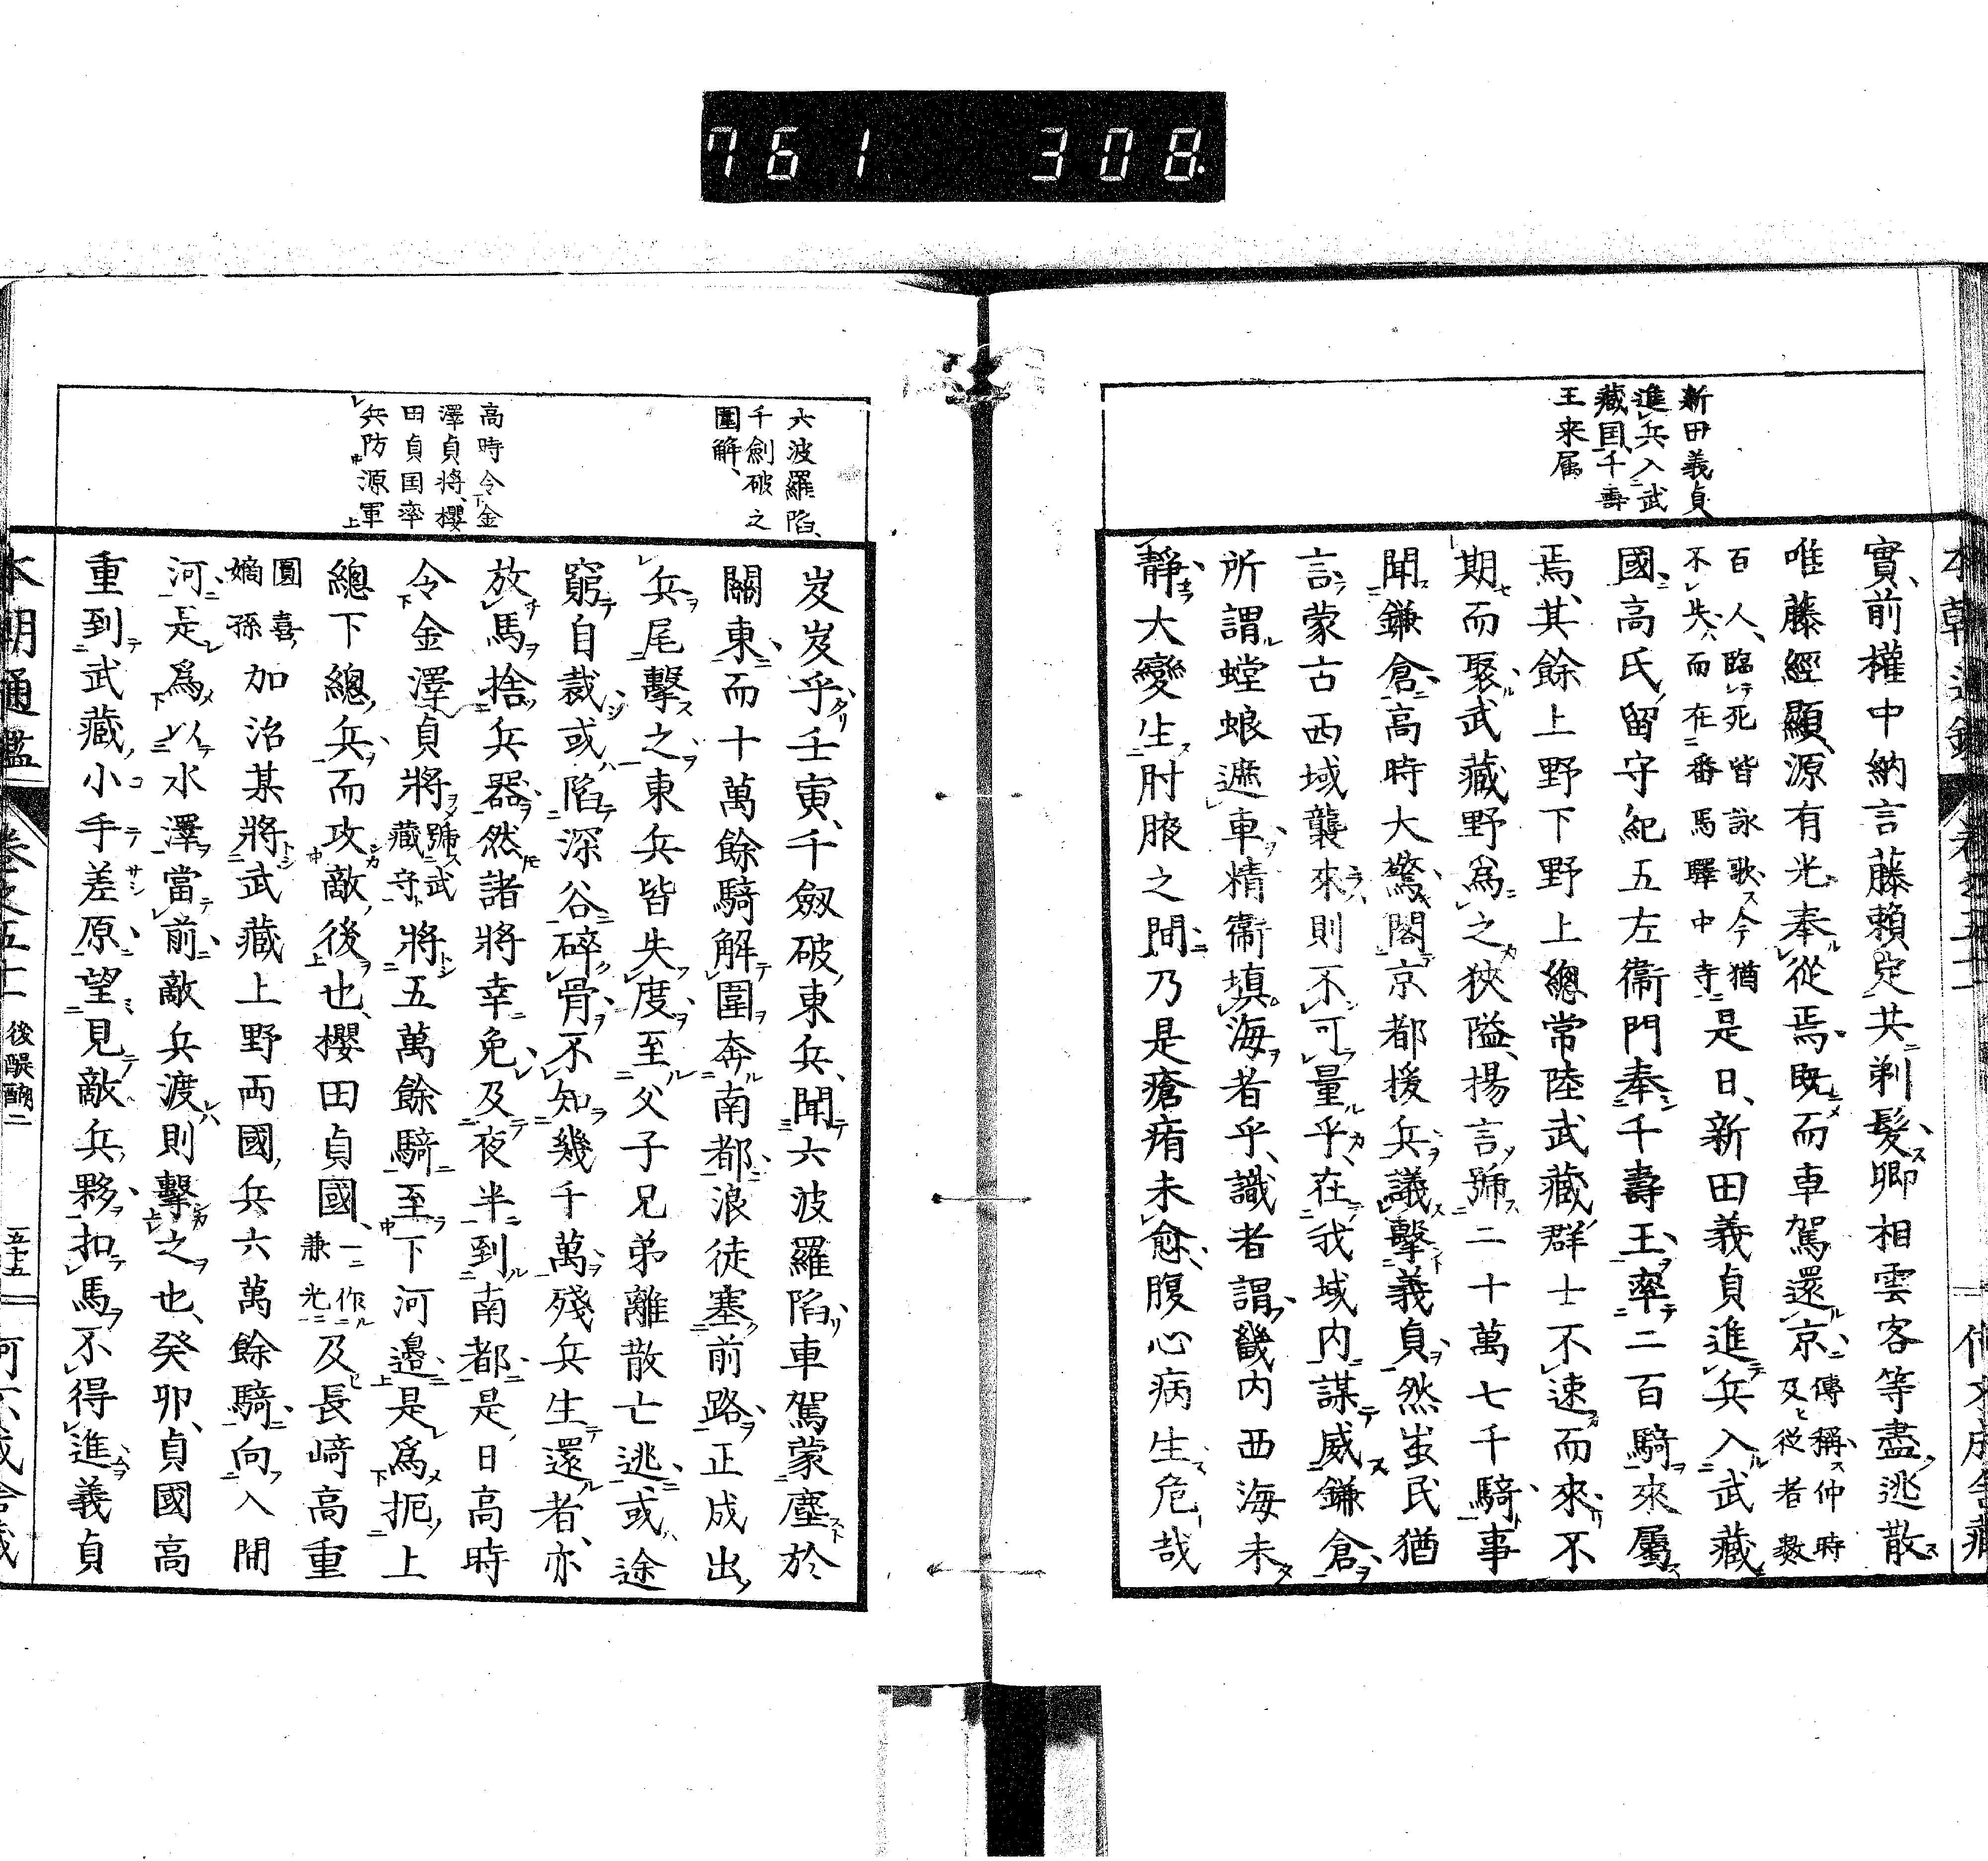 761 308
新田義貞
進兵入武
藏国千壽
王来属
實前權中納言藤賴定共剃髮卿相雲客等盡逃散
唯藤經顯源有光奉從焉既而車駕還京傳稱仲時及從者數
百人臨死皆詠歌今猶不失而在番馬驛中寺是日新田義貞進兵入武藏
國高氏留守紀五左衞門奉千壽王率二百騎來屬
焉其餘上野下野上總常陸武藏群士不速而來不
期而聚武藏野爲之狹隘揚言號二十萬七千騎事
聞鎌倉高時大驚閣京都援兵議擊義貞然蚩民猶
言蒙古西域襲來則不可量乎在我域内謀威鎌倉
所謂螳蜋遮車精衞填海者乎識者謂畿内西海未
靜大變生肘腋之間乃是瘡痏未愈腹心病生危哉
六波羅陷
千劍破之
圍解
高時令金
澤貞將櫻
田貞国率
兵防源軍
岌岌乎壬寅千劔破東兵聞六波羅陷車駕蒙塵於
關東而十萬餘騎解圍奔南都浪徒塞前路正成出
兵尾擊之東兵皆失度至父子兄弟離散亡逃或途
窮自裁或陷深谷碎骨不知幾千萬殘兵生還者亦
放馬捨兵器然諸將幸免及夜半到南都是日高時
令金澤貞將號武藏守將五萬餘騎至下河邉是爲扼上
總下總兵而攻敵後也櫻田貞國一作兼光及長﨑高重
圓喜嫡孫加治某將武藏上野両國兵六萬餘騎向入間
河是爲以水澤當前敵兵渡則擊之也癸卯貞國高
重到武藏小手差原望見敵兵夥扣馬不得進義貞
本朝通鑑 卷之五十二 後醍醐二 五十五